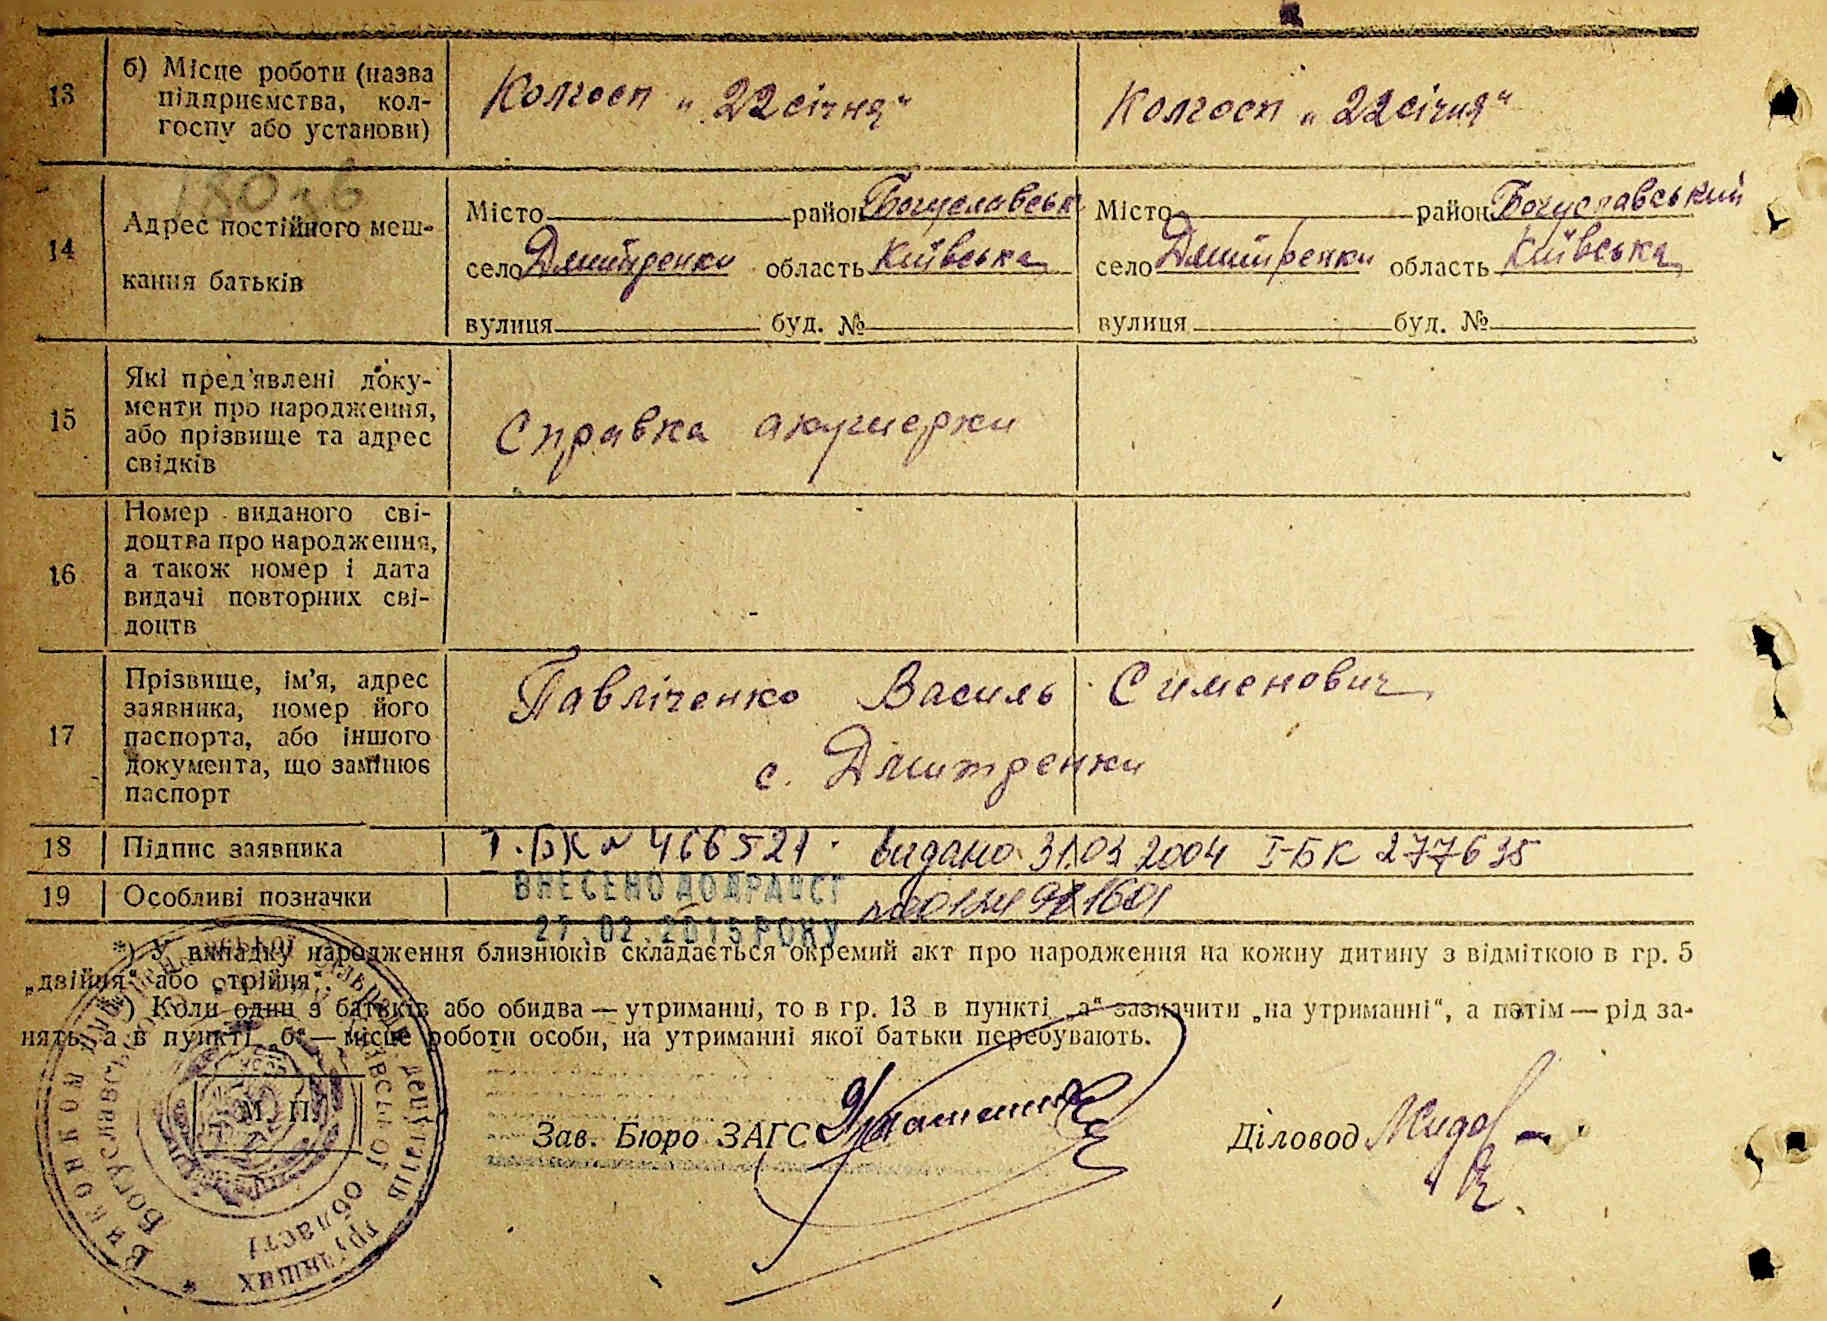 13
б) Місце роботи (назва
підприємства, кол-
госпу або установи)
Колгосп „22 січня“
Колгосп „22 січня“
14
Адрес постійного меш-
кання батьків
Місто район Богуславськ
село Дмитренки область Київська
вулиця буд. №
Місто район Богуславський
село Дмитренки область Київська
вулиця буд. №
15
Які пред'явлені доку-
менти про народження,
або прізвище та адрес
свідків
Справка акушерки
16
Номер виданого сві-
доцтва про народження,
а також номер і дата
видачі повторних сві-
доцтв
17
Прізвище, ім'я, адрес
заявника, номер його
паспорта, або іншого
документа, що замінює
паспорт
Павліченко Василь Сименович
с. Дмитренки
18
Підпис заявника
І-БК № 466521 видано 31.03 2004 І-БК 277635
19
Особливі позначки
ВНЕСЕНО ДО ДРАЦСГ
27 02 2015 РОКУ
*) У випадку народження близнюків складається окремий акт про народження на кожну дитину з відміткою в гр. 5
„двійня“ або „трійня“.
**) Коли один з батьків або обидва — утриманці, то в гр. 13 в пункті „а“ зазначити „на утриманні“, а потім — рід за-
нять, а в пункті „б“ — місце роботи особи, на утриманні якої батьки перебувають.
М. П.
Зав. Бюро ЗАГС
Діловод
Виконком депутатів трудящих
Богуславської області